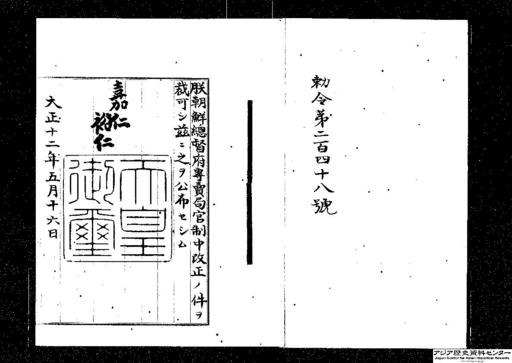 勅令第二百四十八號
朕朝鮮總督府專賣局官制中改正ノ件ヲ
裁可シ茲ニ之ヲ公布セシム
嘉仁
裕仁
天皇
御璽
大正十二年五月十六日
アジア歴史資料センター
Japan Center for Asian Historical Records